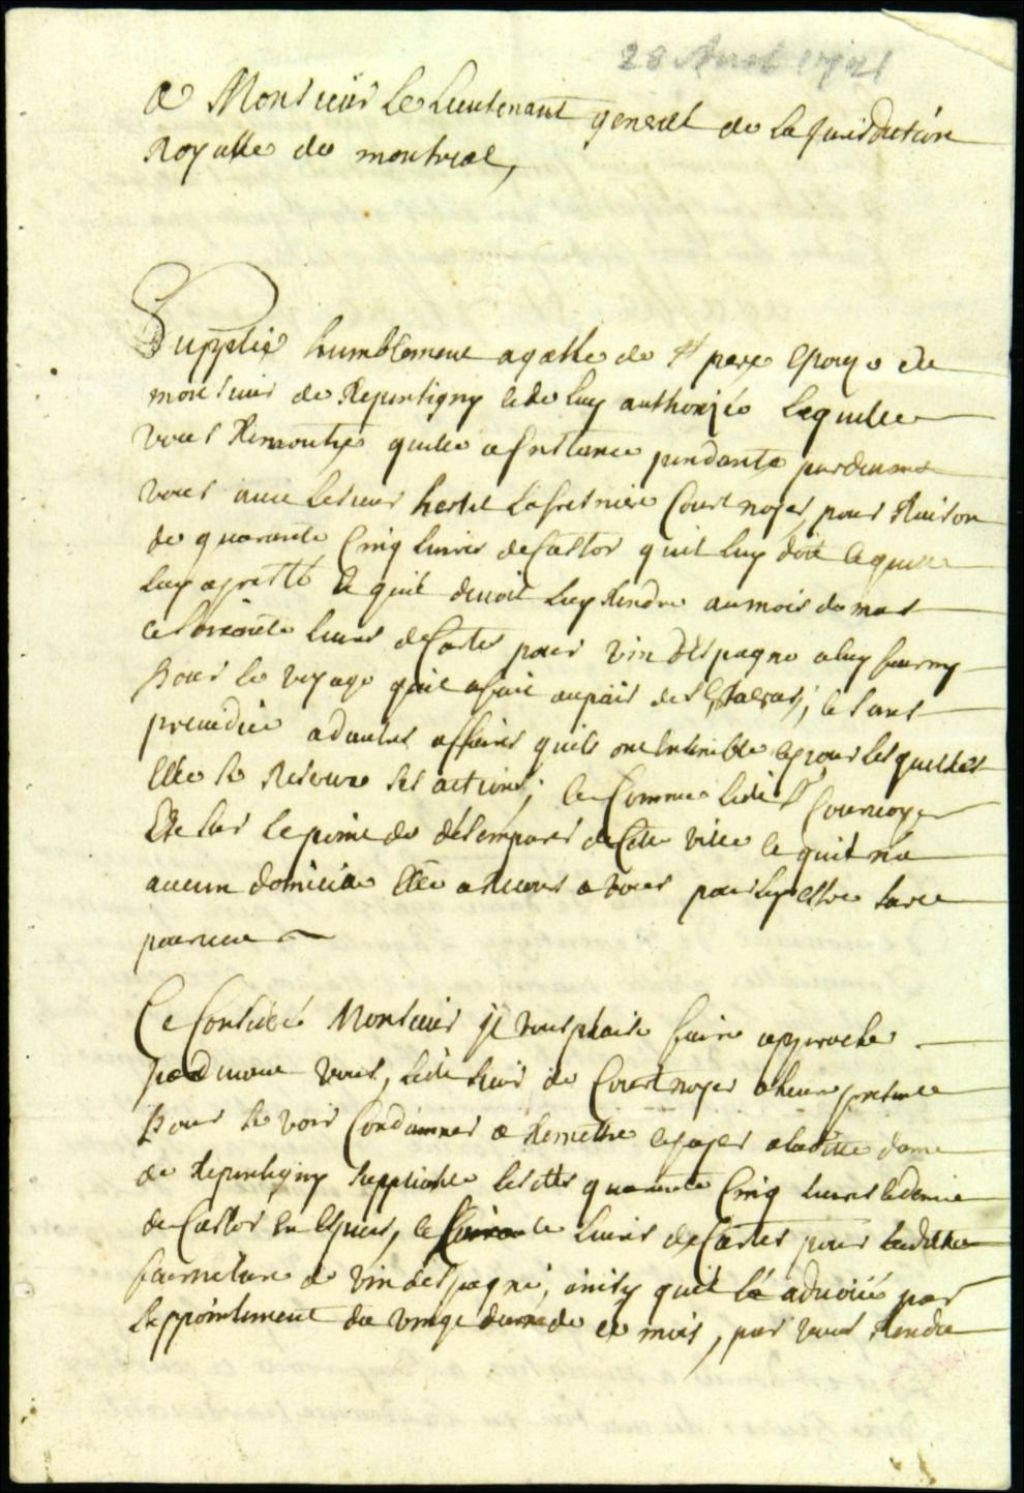 28 Aout 1721
A Monsieur le Lieutenant general de la Jurisdiction
Royalle de montreal,
Supplie humblement agathe de St pere Epouze de
monsieur de Repentigny et de luy authorizée Laquelle
vous Remontre quelle a Instance pendante pardevant
vous avec le sieur hertel Lafreniere Cournoyer, pour Raison
de quarante Cinq Livres de Castor quil luy doit lequelle
luy a pretté Et quil devoit luy Rendre au mois de
et soixante livres de Cartes pour vin d'Espagne a luy fourny
Pour le voyage quil a fait au pais des ; et sans
prejudice a dautres affaires quils ont Ensemble et pour lesquelles
Elle se Reserve ses actions; et Comme ledit Sr Cournoyer
Est sur le point de désemparer de Cette ville et quil na
aucun domicile Elle a recours a vous pour luy estre sur ce
pourveu
Ce Consideré Monsieur Il vous plaise faire approcher
pardevant vous, ledit sieur de Cournoyer a heure presente
Pour se voir Condamner a Remettre et payer a laditte dame
de Repentigny suppliante lesdts quarante Cinq livres et demie
de Castor En Espece, et soixante livres de Cartes pour laditte
fourniture de vin despagne, ainsy quil la advoüé par
lappointement du vingt de ce mois, par vous Rendu